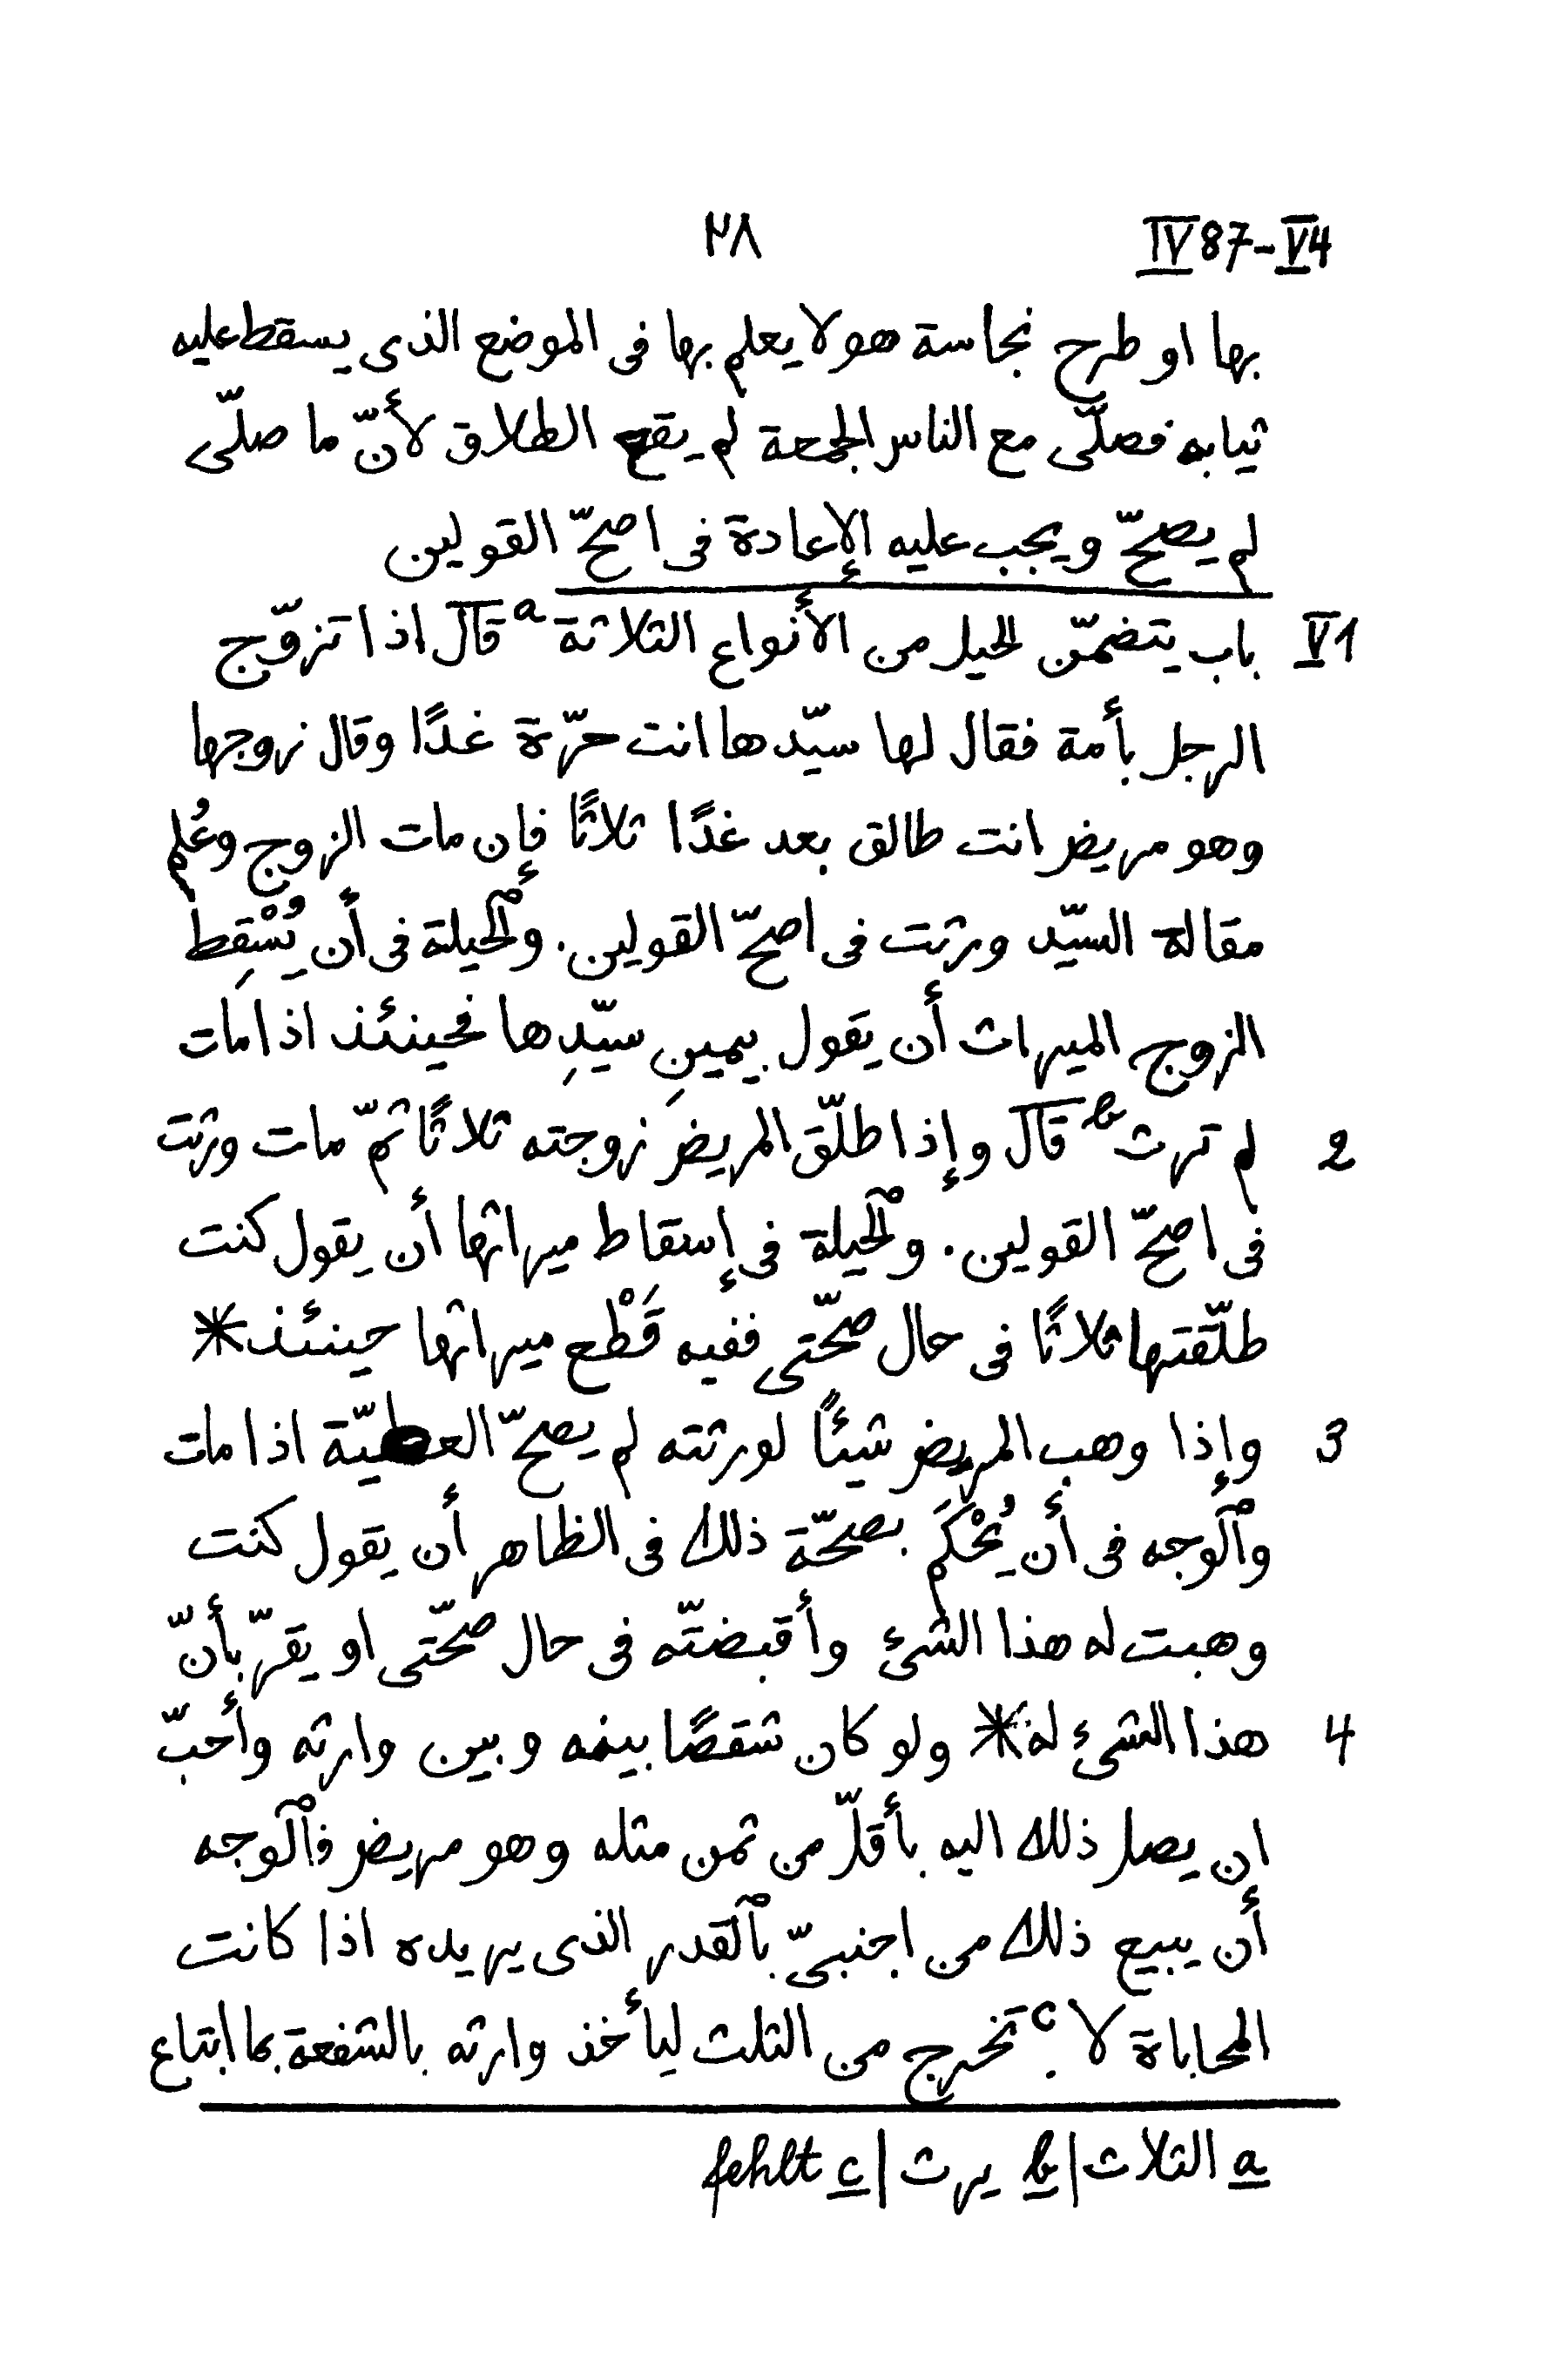 IV 87-V4 ٢٨
بها او طرح نجاسة هو لا يعلم بها فى الموضع الذى يسقط عليه
ثيابه فصلّى مع الناس الجمعة لم يقع الطلاق لأنّ ما صلّى
لم يصحّ ويجب عليه الإعادة فى اصحّ القولين
V1 باب يتضمّن لحيل من الأنواع الثلاثة a قال اذا تزوّج
الرجل بأمة فقال لها سيّدها انت حرّة غدًا وقال زوجها
وهو مريض انت طالق بعد غدًا ثلاثًا فإن مات الزوج وعُلم
مقالة السيّد ورثت فى اصحّ القولين. وٱلحيلة فى أن يُسْقِط
الزوج الميراث أن يقول بيمينِ سيّدِها فحينئذ اذا مات
2 لم ترث b قال وإذا طلّق المريض زوجته ثلاثًا ثمّ مات ورثت
فى اصحّ القولين. وٱلحيلة فى إسقاط ميراثها أن يقول كنت
طلّقتها ثلاثًا فى حال صحّتى ففيه قَطْع ميراثها حينئذ *
3 وإذا وهب المريض شيئًا لورثته لم يصحّ العطيّة اذا مات
وٱلوجه فى أن يُحْكَم بصحّة ذلك فى الظاهر أن يقول كنت
وهبت له هذا الشئ وأقبضتّه فى حال صحّتى او يقرّ بأنّ
4 هذا الشئ له * ولو كان شقصًا بينه وبين وارثه وأحبّ
ان يصل ذلك اليه بأقلّ من ثمن مثله وهو مريض فٱلوجه
أن يبيع ذلك من اجنبىّ بٱلقدر الذى يريده اذا كانت
المحاباة لا c تخرج من الثلث ليأخذ وارثه بالشفعة بما ابتاع
a الثلاث | b يرث | c fehlt